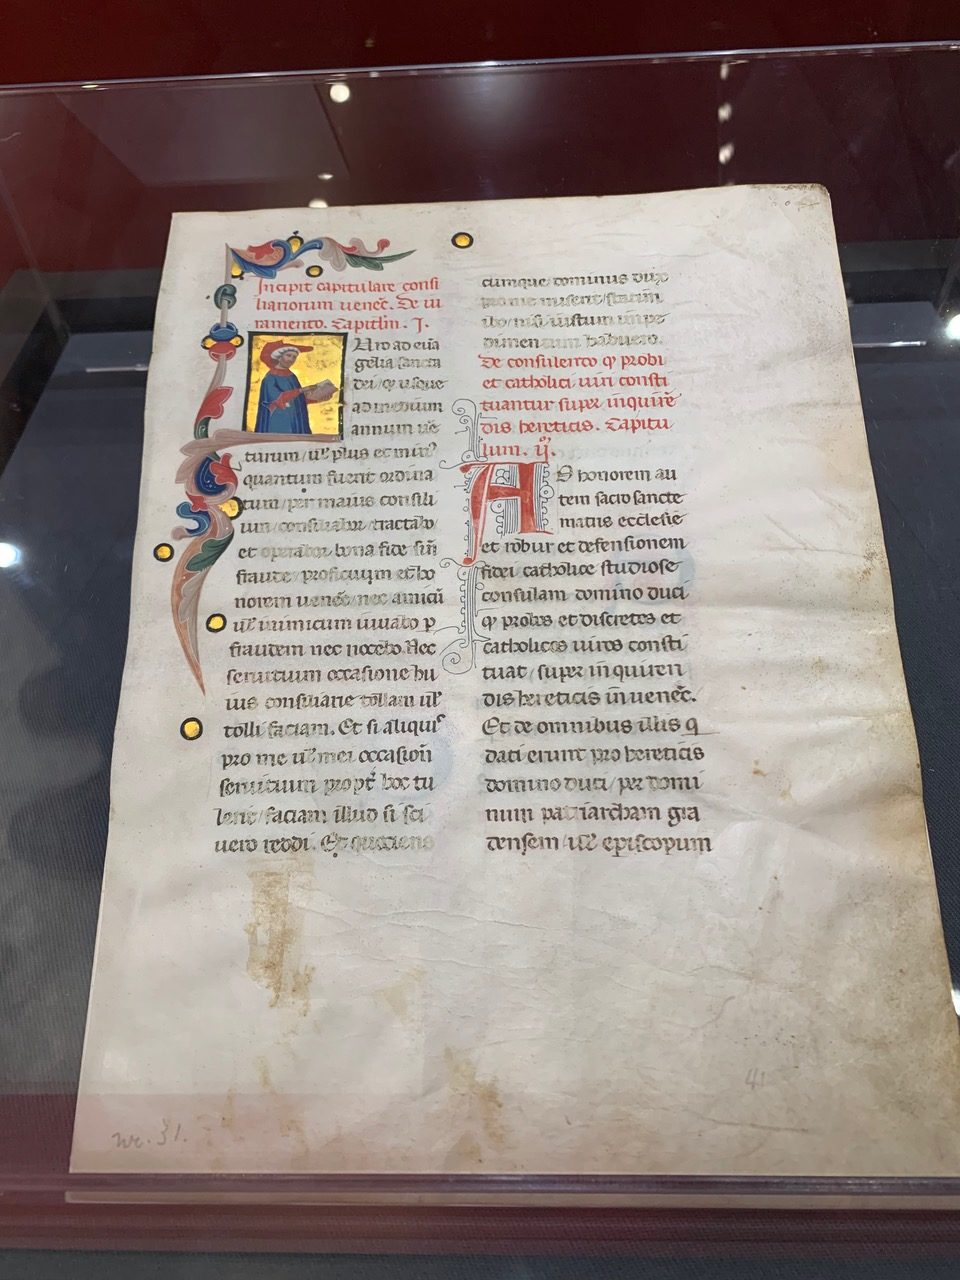 Incipit capitulare consi
liariorum uenec̃. De iu
ramento. Capitlm. I.
Uro ad eua
gelia sancta
dei / qp usque
ad medium
annum ue
turum / ul̃ plus et min᾽
quantum fuerit ordina
tum / per maius consili
um / consiliabor / tractabo
et operabor bona fide sin̄
fraude / proficuum et ho
norem uenec̃ / nec amicũ
ul̃ inimicum iuuabo p
fraudem nec nocebo. Nec
seruitium occasione hu
ius consiliarie tollam ul̃
tolli faciam. Et si aliquis
pro me ul̃ mei occasion̄
seruitium propt̃ hoc tu
lerit / faciam illud si sci
uero reddi. Et quociens
cumque / dominus dux
pro me miserit / statim
ibo / nisi iustum inpe
dimentum habuero.
De consulendo qp probi
et catholici uiri consti
tuantur super inquirẽ
dis hereticis. Capitu
lum. ij.
AD honorem au
tem sacro sancte
matris ecclesie
et robur et defensionem
fidei catholice studiose
consulam domino duci
qp probos et discretos et
catholicos uiros consti
tuat / super inquiren
dis hereticis in uenec̃.
Et de omnibus illis q
dati erunt pro hereticis
domino duci / per domi
num patriarcham gra
densem / ul̃ episcopum
41
nr. 31.